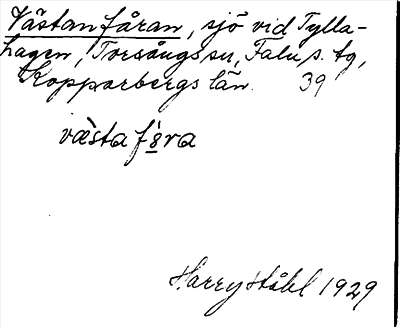 Västanfåran, sjö vid Tylla-
hagen, Torsångs sn, Falu s. tg,
Kopparbergs län. 39
västa f8ra
Harry Ståhl 1929